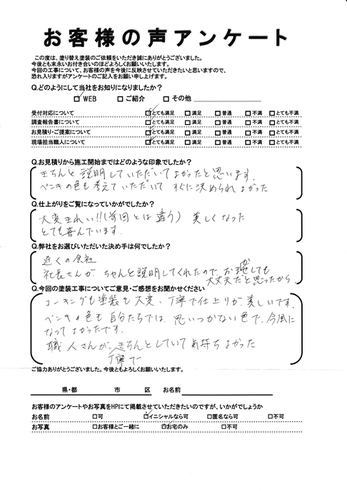 お客様の声アンケート
この度は、塗り替え塗装のご依頼をいただき誠にありがとうございました。
今後とも末永いお付き合いのほどよろしくお願いいたします。
今回の工事について、お客様の声を今後に反映させていただきたいと思いますので、
恐れ入りますがアンケートのご記入をお願い申し上げます。
Q.どのようにして当社をお知りになりましたか?
☑WEB □ご紹介 □その他
受付対応について ☑とても満足 □満足 □普通 □不満 □とても不満
調査報告書について ☑とても満足 □満足 □普通 □不満 □とても不満
お見積り・ご提案について ☑とても満足 □満足 □普通 □不満 □とても不満
現場担当職人について ☑とても満足 □満足 □普通 □不満 □とても不満
Q.お見積りから施工開始まではどのような印象でしたか?
きちんと説明していただいてよかったと思います。
ペンキの色も考えていただいて すぐに決められよかった
Q.仕上がりをご覧になっていかがでしたか?
大変きれい!!(前回とは違う) 美しくなった
とても喜んでいます。
Q.弊社をお選びいただいた決め手は何でしたか?
近くの会社
社長さんが ちゃんと説明してくれたので、お願いしても
大丈夫だと思ったから
Q.今回の塗装工事についてご意見・ご感想をお聞かせください
コーキングも塗装も大変、丁寧で仕上りが美しいです。
ペンキの色も自分たちでは、思いつかない色で、今風に
なってよかったです。
職人さんがきちんとしていてお持ちよかった
丁寧で
ご協力ありがとうございました。今後ともよろしくお願いいたします。
県・都 市 区 お名前
お客様のアンケートやお写真をHPにて掲載させていただきたいのですが、いかがでしょうか
お名前 □可 ☑イニシャルなら可 □匿名なら可 □不可
お写真 □お客様とご一緒に ☑お宅のみ □不可